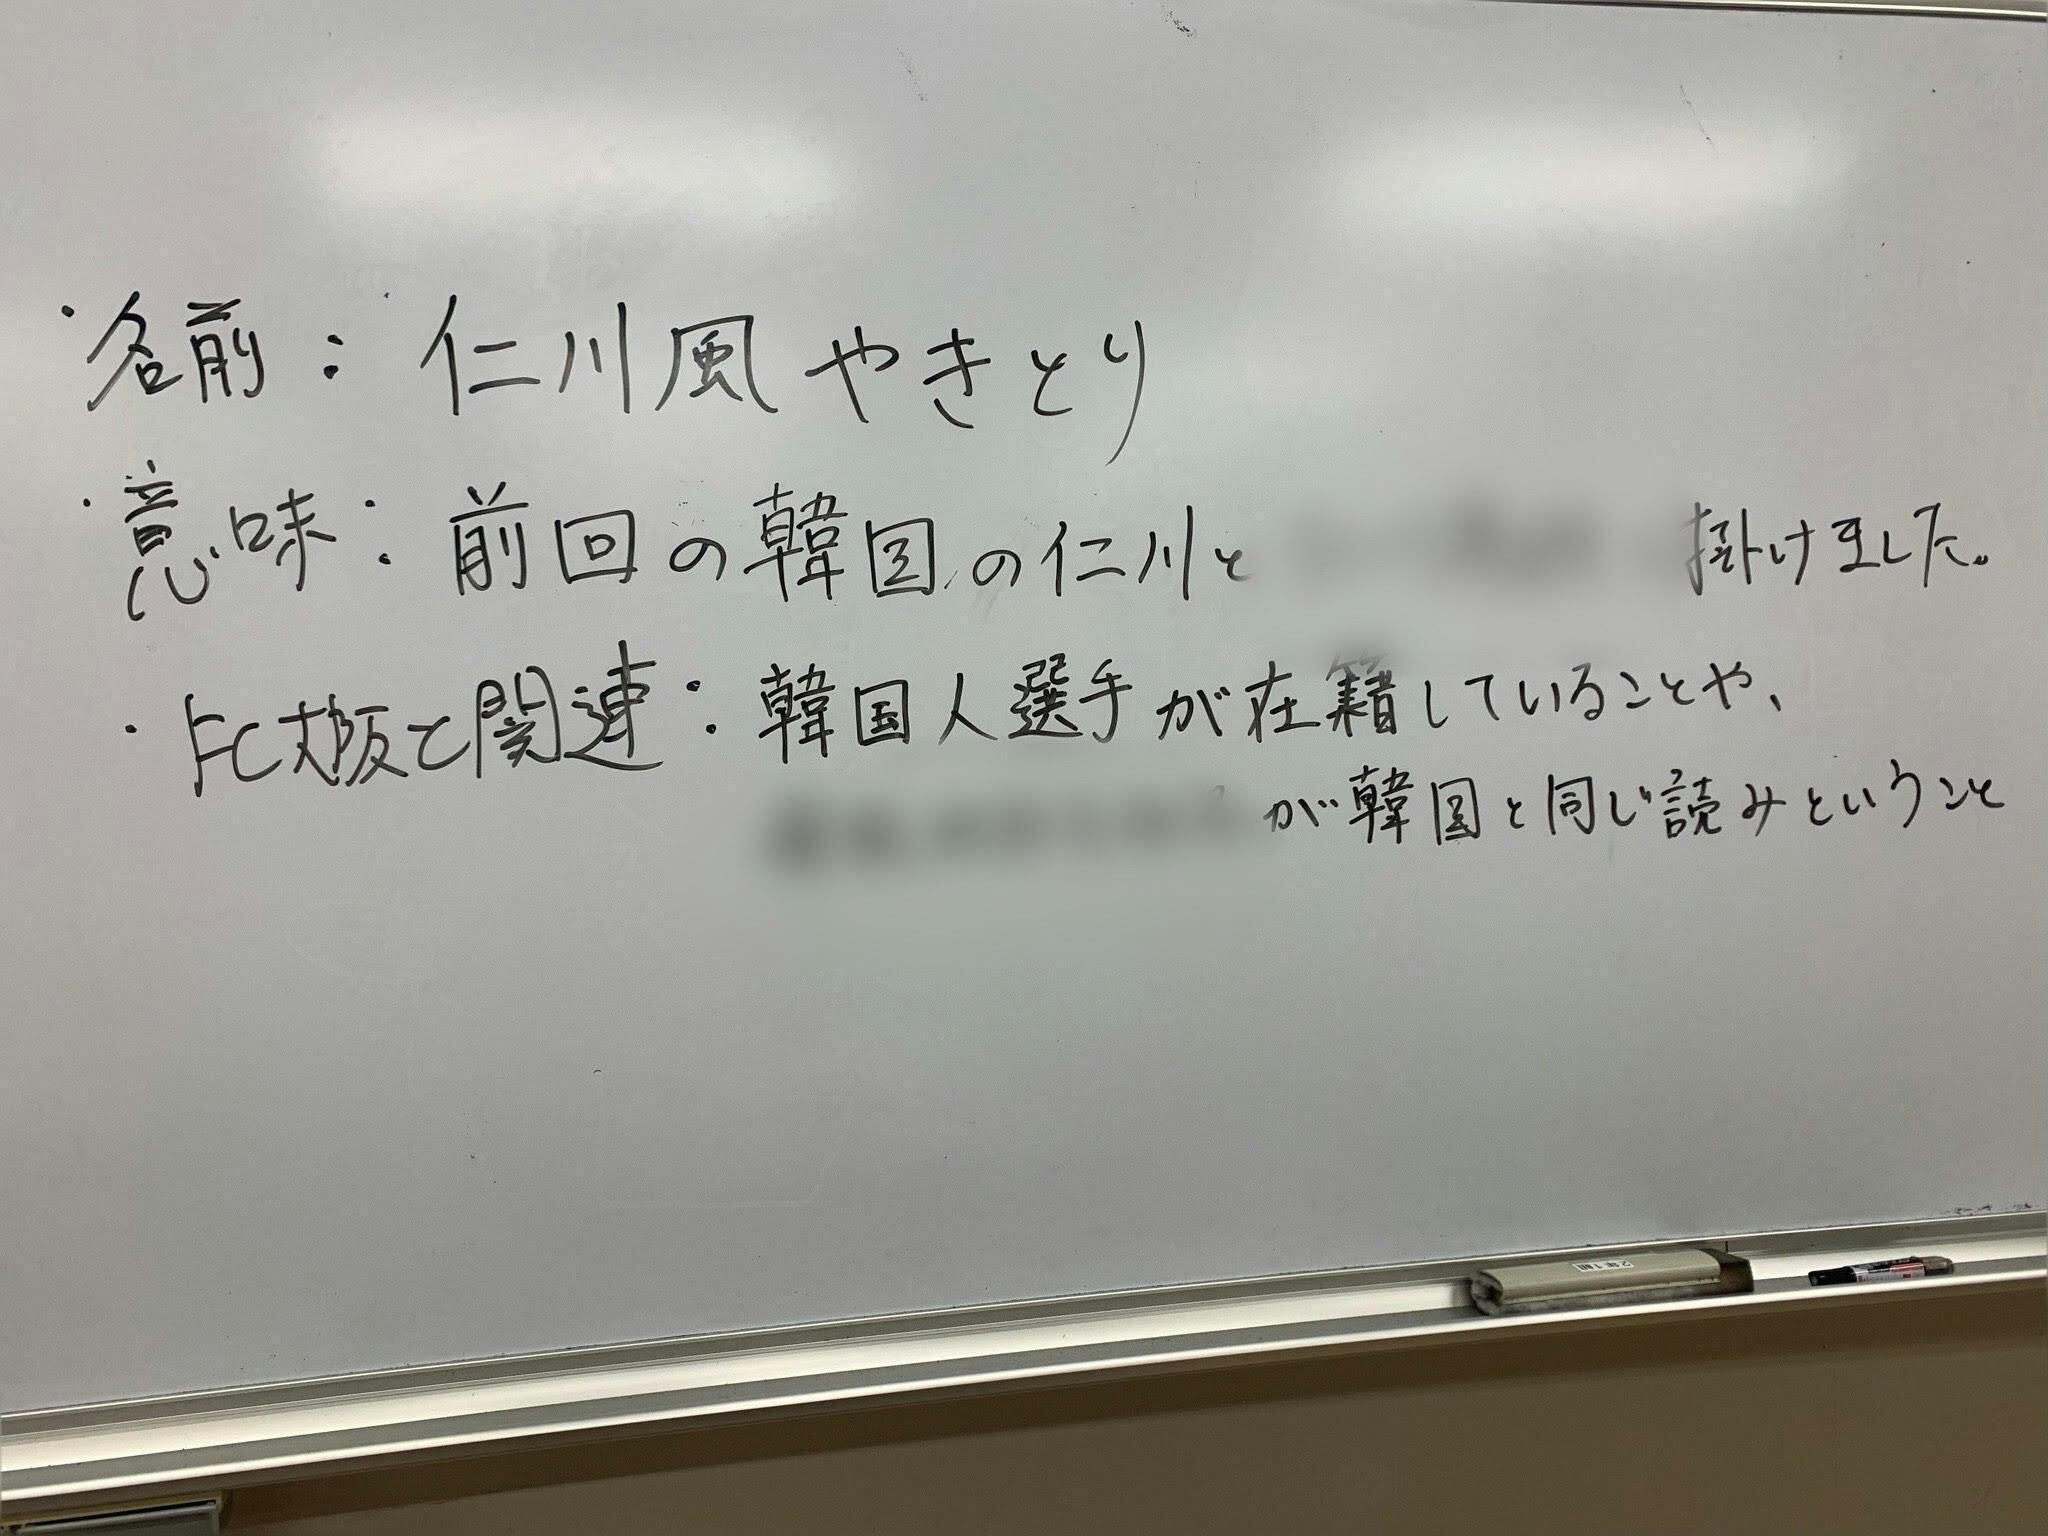 ・名前：仁川風やきとり
・意味：前回の韓国の仁川と 掛けました。
・FC大阪と関連：韓国人選手が在籍していることや、
が韓国と同じ読みということ
2年1組